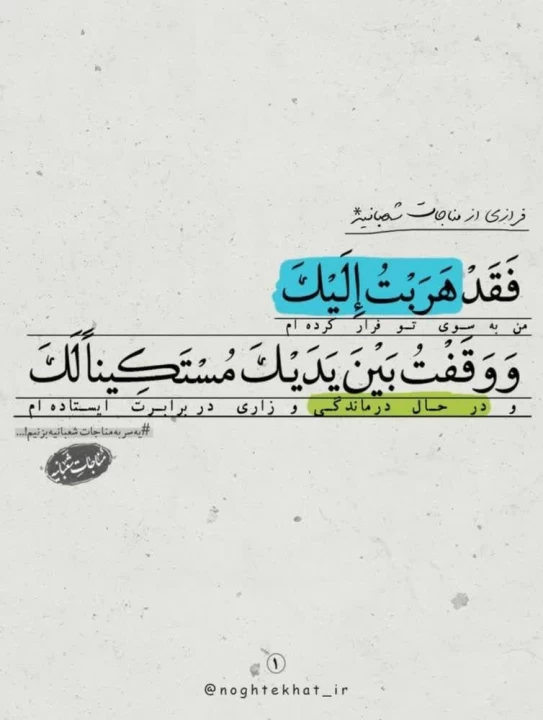 فرازی از مناجات شعبانیه*
فَقَدْ هَرَبْتُ إِلَيْكَ
من به سوی تو فرار کرده ام
وَ وَقَفْتُ بَيْنَ يَدَيْكَ مُسْتَكِيناً لَكَ
و در حال درماندگی و زاری در برابرت ایستاده ام
#یه‌سر‌به‌مناجات‌شعبانیه‌بزنیم!...
مناجات شعبانیه
۱
@noghtekhat_ir